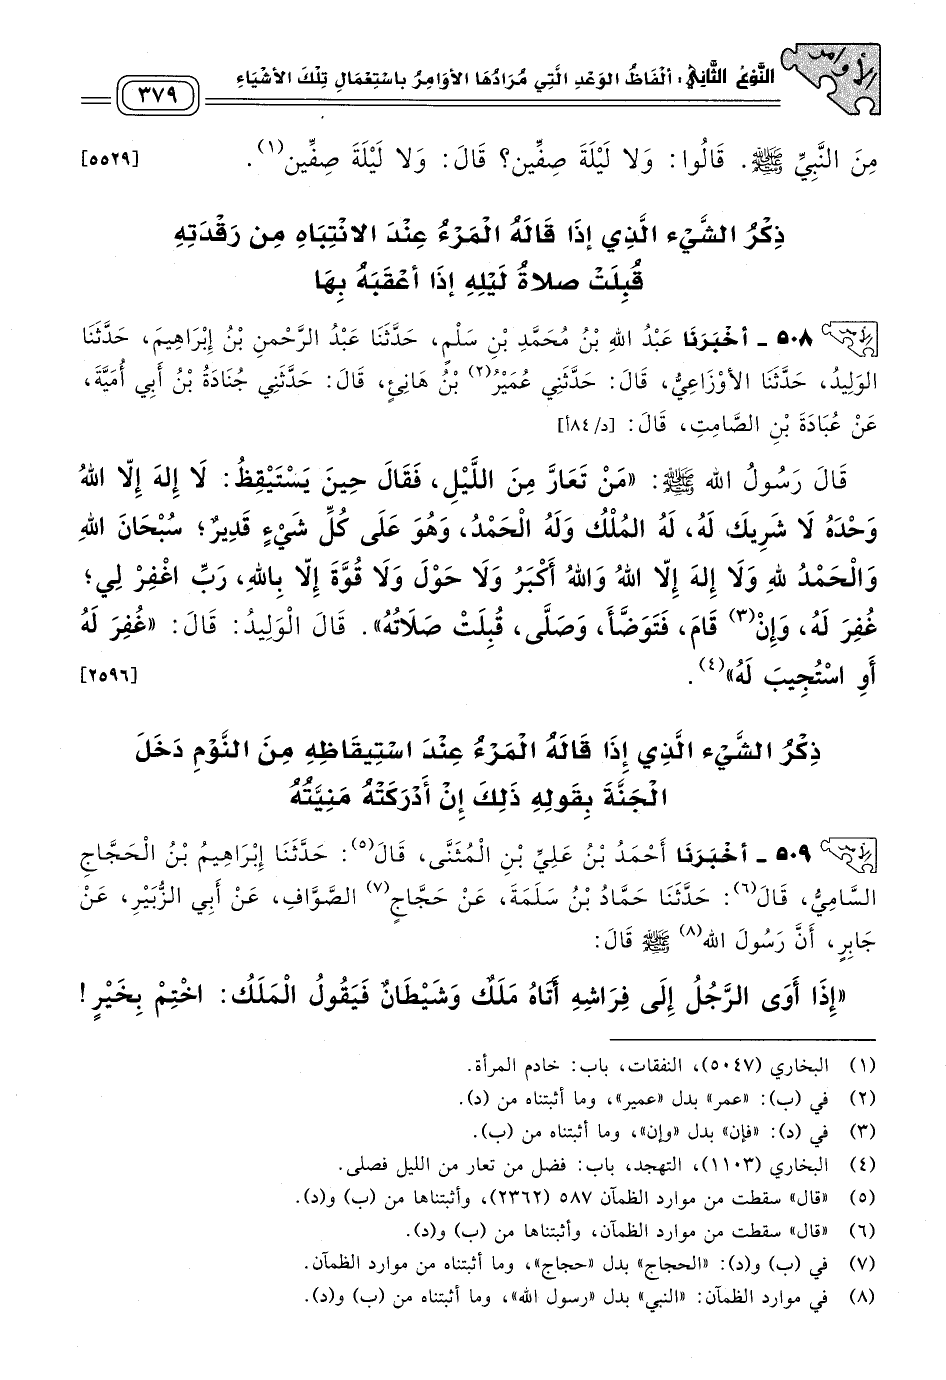 الأوامر
النَّوْعُ الثَّانِيْ: ألْفَاظُ الوَعْدِ الَّتِي مُرَادُهَا الأوَامِرُ باسْتِعْمَالِ تِلْكَ الأشْيَاءِ
٣٧٩
مِنَ النَّبِيِّ ﷺ. قَالُوا: وَلا لَيْلَةَ صِفِّين؟ قَالَ: وَلا لَيْلَةَ صِفِّين(١). [٥٥٢٩]
ذِكْرُ الشَّيْء الَّذِي إذَا قَالَهُ المَرْءُ عِنْدَ الانْتِبَاهِ مِن رَقْدَتِهِ
قُبِلَتْ صلاةُ لَيْلِهِ إذَا أعْقَبَهُ بِهَا
٥٠٨ - أخْبَرَنَا عَبْدُ اللهِ بْنُ مُحَمَّدِ بْنِ سَلْمٍ، حَدَّثَنَا عَبْدُ الرَّحْمنِ بْنُ إبْرَاهِيمَ، حَدَّثَنَا
الوَلِيدُ، حَدَّثَنَا الأوْزَاعِيُّ، قَالَ: حَدَّثَنِي عُمَيْرُ(٢) بْنُ هَانِئٍ، قَالَ: حَدَّثَنِي جُنَادَةُ بْنُ أبِي أُمَيَّةَ،
عَنْ عُبَادَةَ بْنِ الصَّامِتِ، قَالَ: [د/٨٤أ]
قَالَ رَسُولُ اللهِ ﷺ: «مَنْ تَعَارَّ مِنَ اللَّيْلِ، فَقَالَ حِينَ يَسْتَيْقِظُ: لَا إِلهَ إِلّا اللهُ
وَحْدَهُ لَا شَرِيكَ لَهُ، لَهُ المُلْكُ وَلَهُ الْحَمْدُ، وَهُوَ عَلَى كُلِّ شَيْءٍ قَدِيرٌ؛ سُبْحَانَ اللهِ
وَالْحَمْدُ للهِ وَلَا إِلهَ إِلّا اللهُ وَاللهُ أَكْبَرُ وَلَا حَوْلَ وَلَا قُوَّةَ إِلّا بِاللهِ، رَبِّ اغْفِرْ لِي؛
غُفِرَ لَهُ، وَإِنْ(٣) قَامَ، فَتَوَضَّأَ، وَصَلَّى، قُبِلَتْ صَلَاتُهُ». قَالَ الْوَلِيدُ: قَالَ: «غُفِرَ لَهُ
أَوِ اسْتُجِيبَ لَهُ»(٤). [٢٥٩٦]
ذِكْرُ الشَّيْء الَّذِي إِذَا قَالَهُ المَرْءُ عِنْدَ اسْتِيقَاظِهِ مِنَ النَّوْمِ دَخَلَ
الْجَنَّةَ بِقَولِهِ ذَلِكَ إنْ أَدْرَكَتْهُ مَنِيَّتُهُ
٥٠٩ - أخْبَرَنَا أَحْمَدُ بْنُ عَلِيِّ بْنِ الْمُثَنَّى، قَالَ(٥): حَدَّثَنَا إبْرَاهِيمُ بْنُ الْحَجَّاجِ
السَّامِيُّ، قَالَ(٦): حَدَّثَنَا حَمَّادُ بْنُ سَلَمَةَ، عَنْ حَجَّاجٍ(٧) الصَّوَّافِ، عَن أَبِي الزُّبَيْرِ، عَنْ
جَابِرٍ، أَنَّ رَسُولَ اللهِ(٨) ﷺ قَالَ:
«إِذَا أَوَى الرَّجُلُ إِلَى فِرَاشِهِ أَتَاهُ مَلَكٌ وَشَيْطَانٌ فَيَقُولُ الْمَلَكُ: اخْتِمْ بِخَيْرٍ!
(١) البخاري (٥٠٤٧)، النفقات، باب: خادم المرأة.
(٢) في (ب): «عمر» بدل «عمير»، وما أثبتناه من (د).
(٣) في (د): «فإن» بدل «وإن»، وما أثبتناه من (ب).
(٤) البخاري (١١٠٣)، التهجد، باب: فضل من تعار من الليل فصلى.
(٥) «قال» سقطت من موارد الظمآن ٥٨٧ (٢٣٦٢)، وأثبتناها من (ب) و(د).
(٦) «قال» سقطت من موارد الظمآن، وأثبتناها من (ب) و(د).
(٧) في (ب) و(د): «الحجاج» بدل «حجاج»، وما أثبتناه من موارد الظمآن.
(٨) في موارد الظمآن: «النبي» بدل «رسول الله»، وما أثبتناه من (ب) و(د).